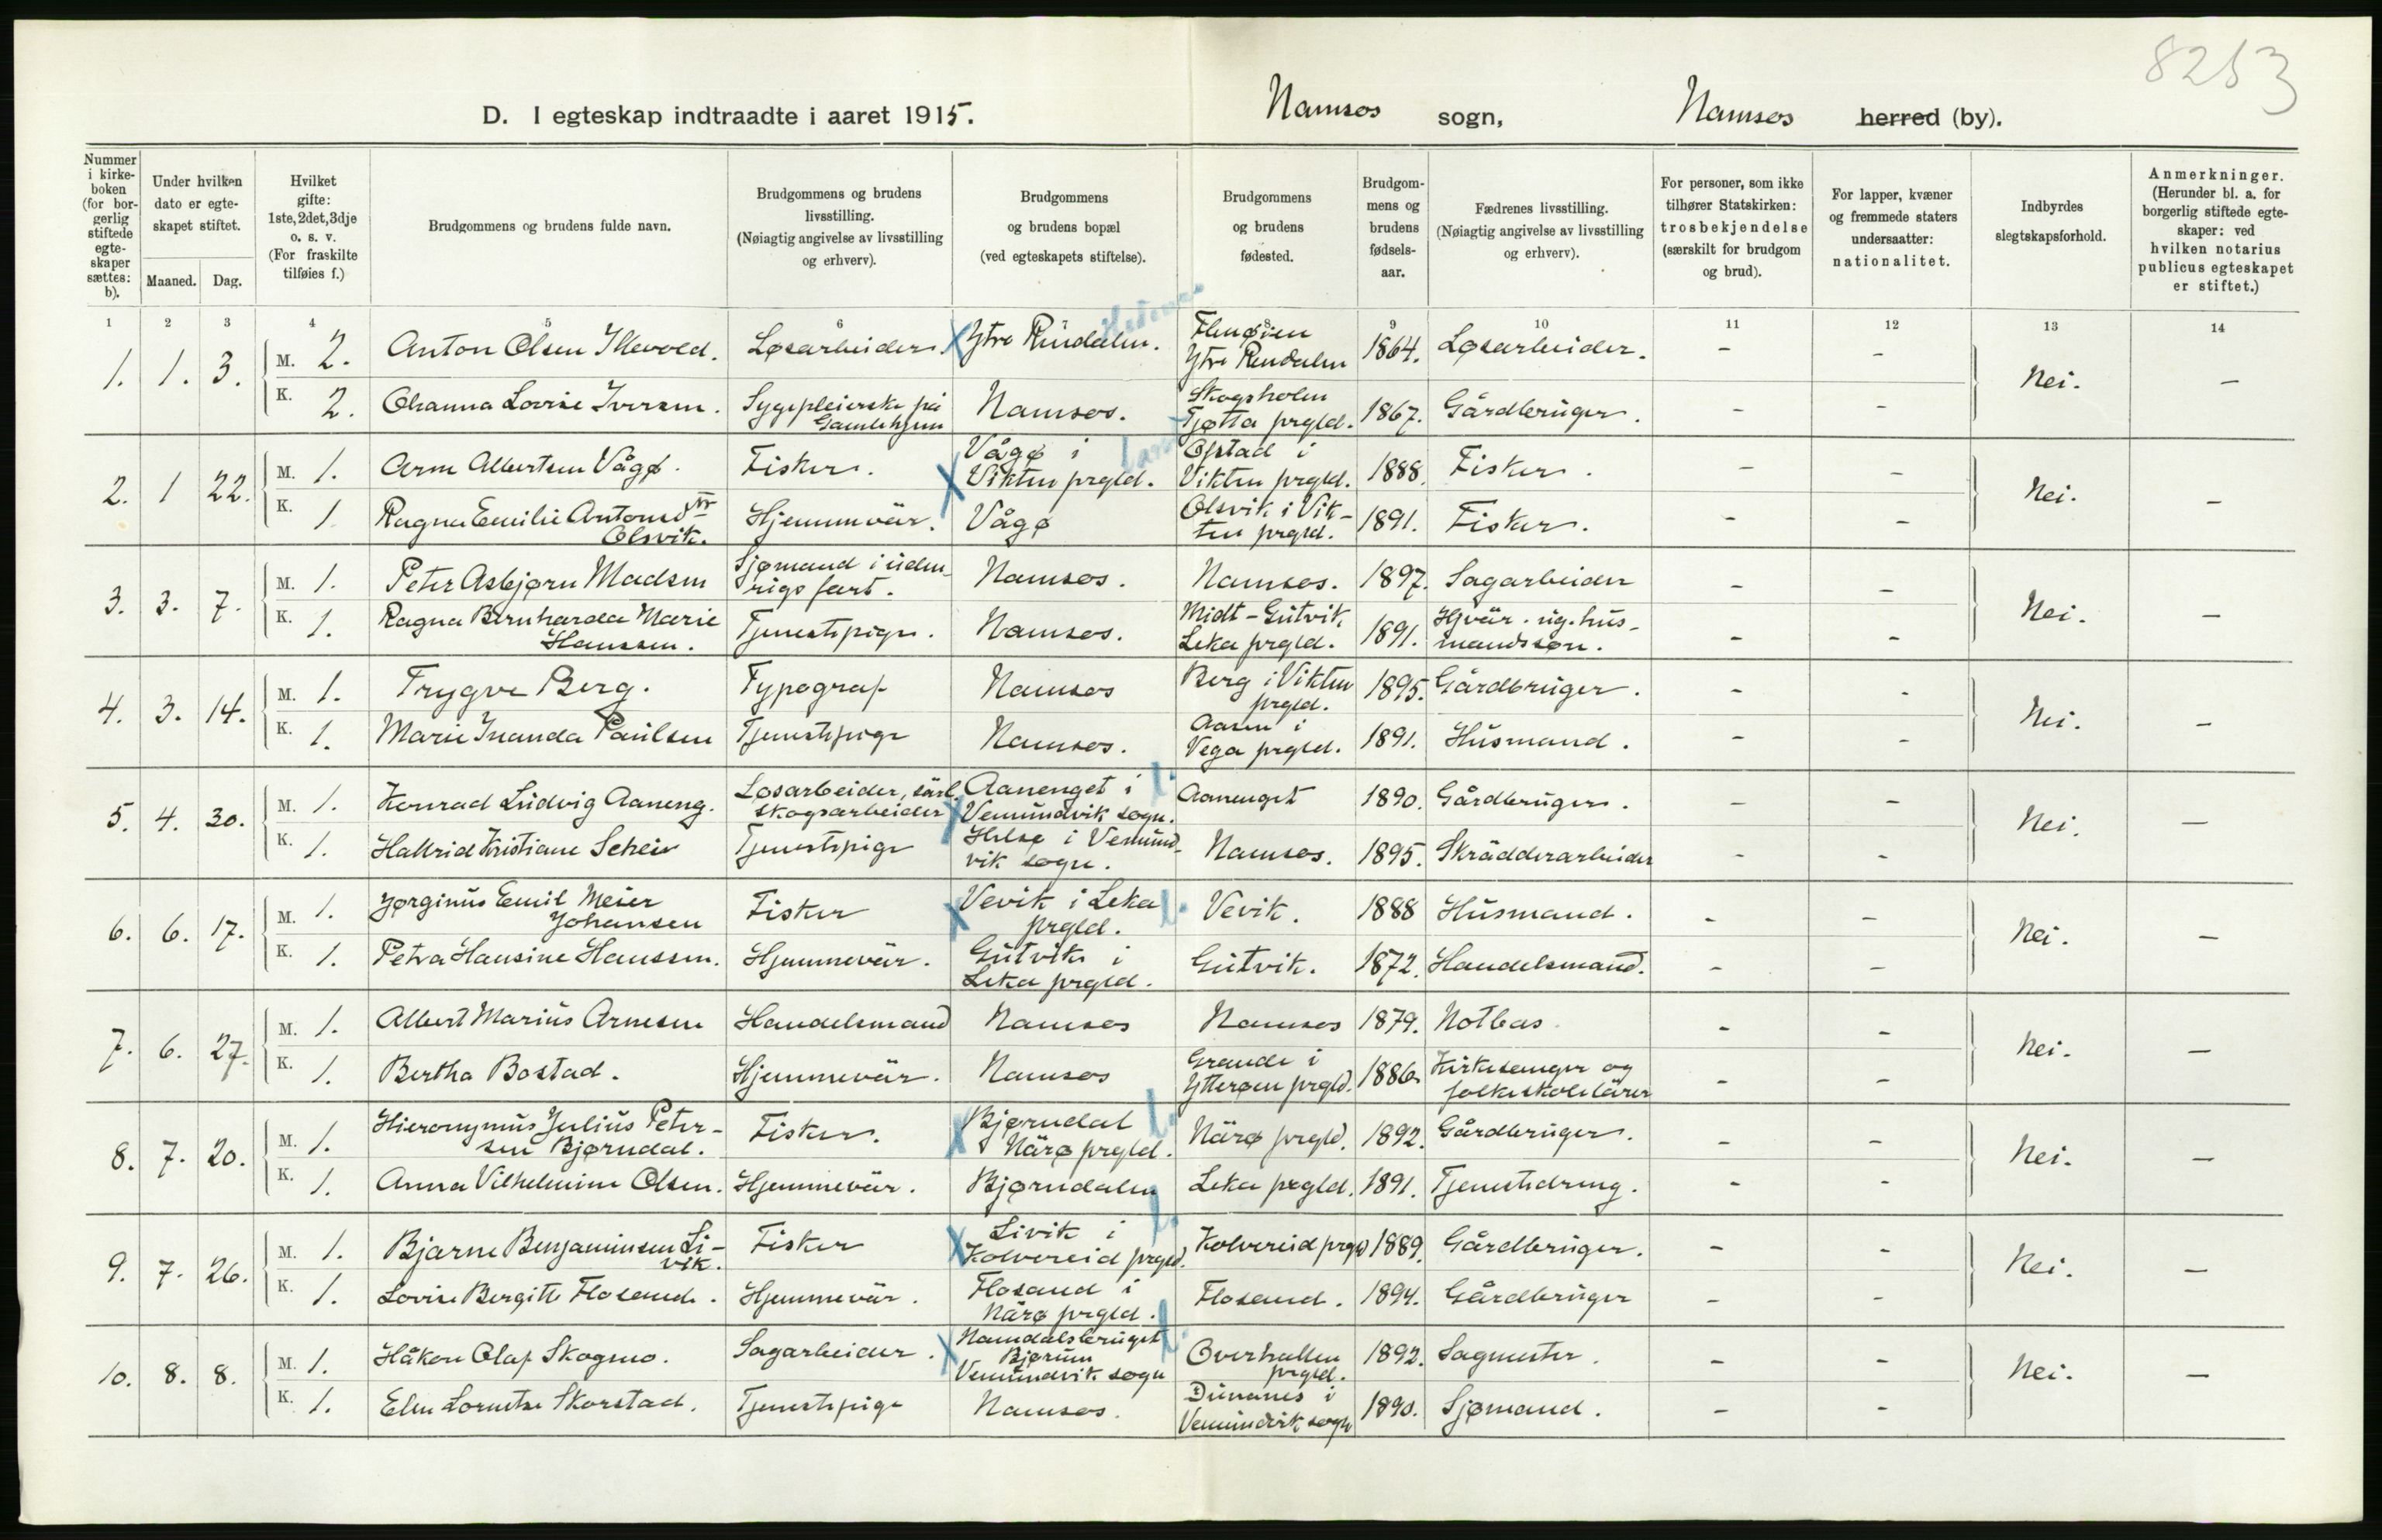 8253
D. I egteskap indtraadte i aaret 1915. Namsos sogn, Namsos herred (by).
Nummer i kirkeboken (for borgerlig stiftede egteskaper sættes: b).
Under hvilken dato er egteskapet stiftet.
Maaned. Dag.
Hvilket gifte: 1ste, 2det, 3dje o. s. v. (For fraskilte tilføies f.)
Brudgommens og brudens fulde navn.
Brudgommens og brudens livsstilling. (Nøiagtig angivelse av livsstilling og erhverv).
Brudgommens og brudens bopæl (ved egteskapets stiftelse).
Brudgommens og brudens fødested.
Brudgommens og brudens fødselsaar.
Fædrenes livsstilling. (Nøiagtig angivelse av livsstilling og erhverv).
For personer, som ikke tilhører Statskirken: trosbekjendelse (særskilt for brudgom og brud).
For lapper, kvæner og fremmede staters undersaatter: nationalitet.
Indbyrdes slegtskapsforhold.
Anmerkninger. (Herunder bl. a. for borgerlig stiftede egteskaper: ved hvilken notarius publicus egteskapet er stiftet.)
1 2 3 4 5 6 7 8 9 10 11 12 13 14
1. 1. 3. M. 2. Anton Olsen Illevold. Løsarbeider. Ytre Rendalen. Ytre Rendalen 1864. Løsarbeider. - - Nei. -
K. 2. Ohanna Lovise Iversen. Sygepleierske på Gamlehjem Namsos. Skogsholm Tjøtta prgld. 1867. Gårdbruger. - -
2. 1 22. M. 1. Arne Albertsen Vågø. Fisker. Vågø i Vikten prgld. Ofstad i Vikten prgld. 1888. Fisker. - - Nei. -
K. 1. Ragna Emilie Antonsdtr Olsvik. Hjemmevær. Vågø Olsvik i Vikten prgld. 1891. Fisker. - -
3. 3. 7. M. 1. Peter Asbjørn Madsen Sjømand i udenrigs fart. Namsos. Namsos. 1897. Sagarbeider - - Nei. -
K. 1. Ragna Bernharda Marie Hanssen. Tjenestepige. Namsos. Midt-Gutvik, Leka prgld. 1891. Hjvær. ug. husmandssøn. - -
4. 3. 14. M. 1. Trygve Berg. Typograf Namsos Berg i Vikten prgld. 1895. Gårdbruger. - - Nei. -
K. 1. Marie Inanda Paulsen Tjenestepige Namsos. Aasen i Vega prgld. 1891. Husmand. - -
5. 4. 30. M. 1. Konrad Ludvig Aaneng. Løsarbeider, særl. skogsarbeider Aanenget i Vemundvik sogn. Aanenget 1890. Gårdbruger. - - Nei. -
K. 1. Halrid Kristiane Scheie Tjenestepige i Vemundvik sogn. Namsos. 1895. Skrædderarbeider - -
6. 6. 17. M. 1. Jørginus Emil Meier Johansen Fisker Vevik i Leka prgld. Vevik. 1888 Husmand. - - Nei. -
K. 1. Petra Hansine Hanssen. Hjemmevær. Gutvik i Leka prgld. Gutvik. 1872. Handelsmand. - -
7. 6. 27. M. 1. Albert Marius Arnesen Handelsmand Namsos Namsos 1879. Notbas. - - Nei. -
K. 1. Bertha Bostad. Hjemmevær. Namsos Grande i Ytterøen prgld. 1886. Kirkesanger og folkeskolelærer - -
8. 7. 20. M. 1. Hieronymus Julius Petersen Bjørndal. Fisker. Bjørndal Nærø prgld. Nærø prgld. 1892. Gårdbruger. - - Nei. -
K. 1. Anna Vilhelmine Olsen. Hjemmevær. Bjørndalen Leka prgld. 1891. Tjenestedreng. - -
9. 7. 26. M. 1. Bjarne Benjaminsen Livik. Fisker Livik i Kolvereid prgld. Kolvereid prgld 1889. Gårdbruger. - - Nei. -
K. 1. Lovise Bergitte Flosand. Hjemmevær. Flosand i Nærø prgld. Flosand. 1894. Gårdbruger - -
10. 8. 8. M. 1. Håkon Olaf Skogmo. Sagarbeider. Namdalsbruget Bjørum Vemundvik sogn Overhallen prgld. 1892. Sagmester. - - Nei. -
K. 1. Elen Lorentse Skorstad. Tjenestepige Namsos. Dunanes i Vemundvik sogn 1890. Sjømand. - -